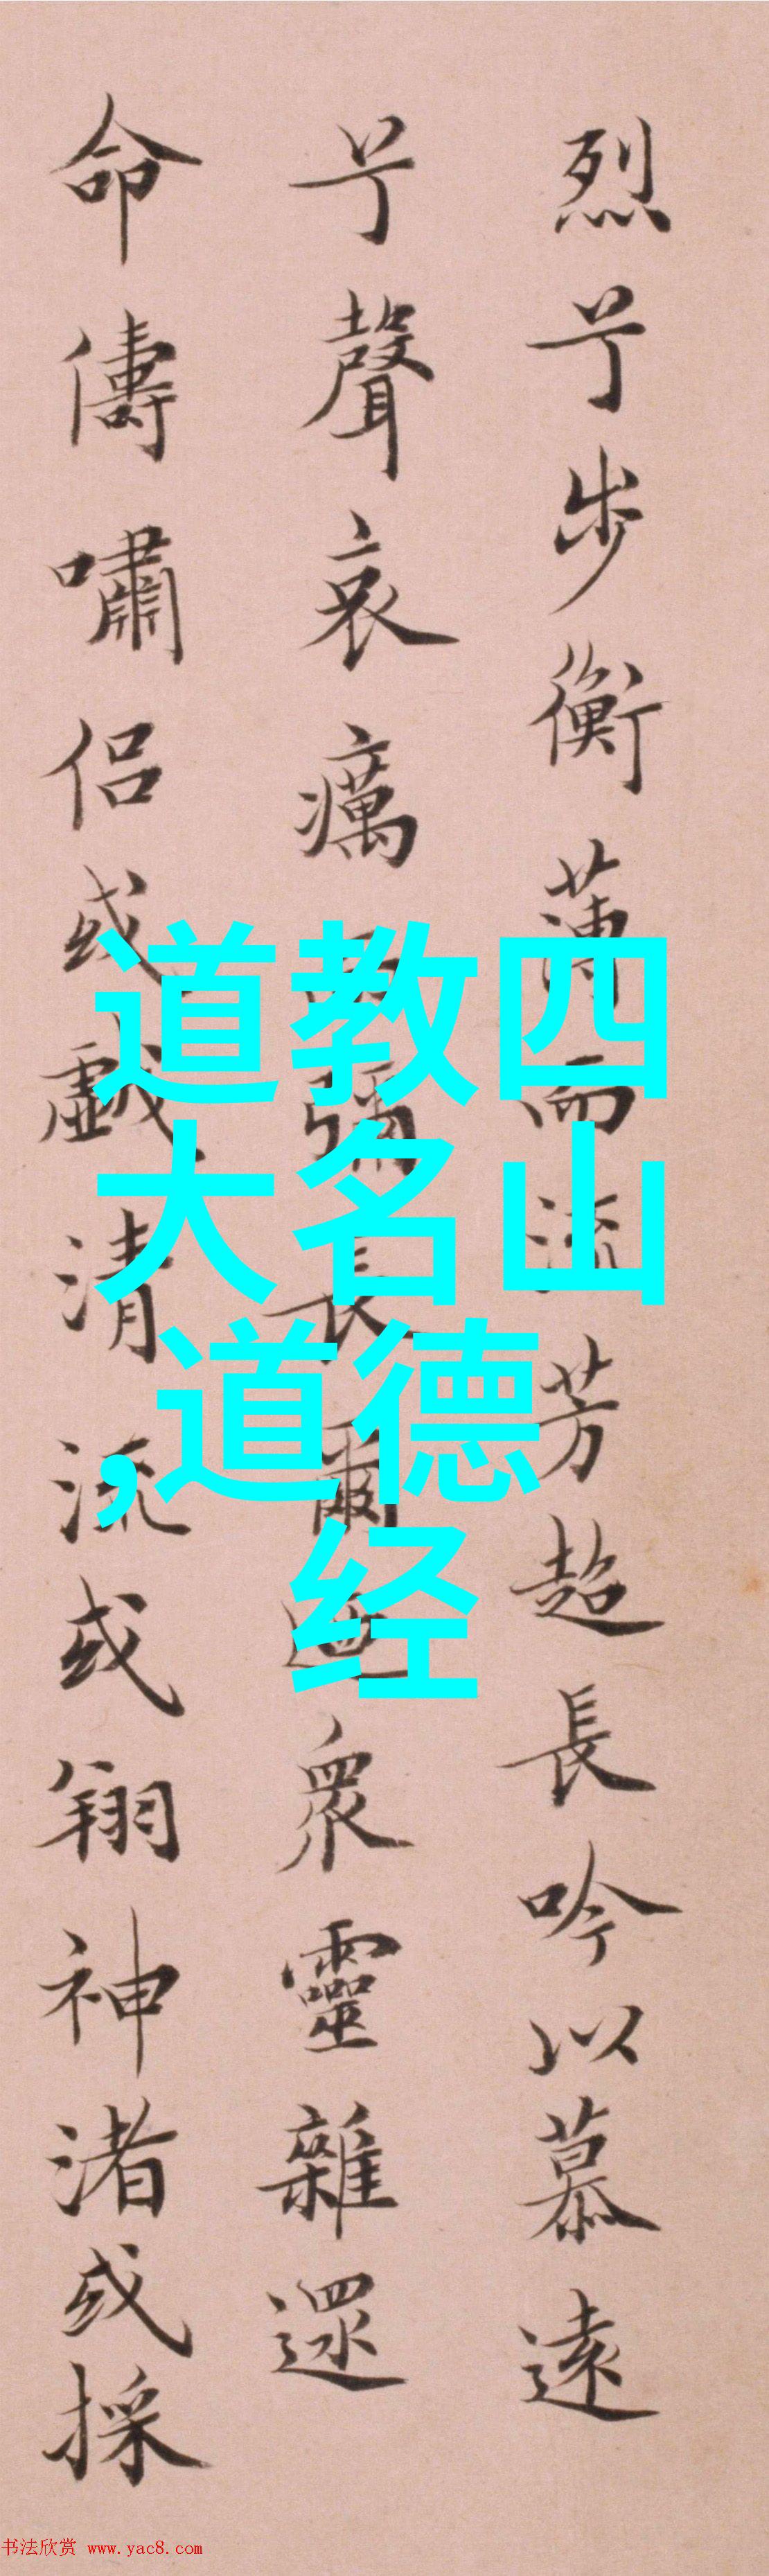 烈兮步衡薄而流芳超長吟以慕遠
兮聲哀癘而彌長爾迺衆靈雜遝
命儔嘯侶或戲清流或翔神渚或採
道教四
大名山
,道德
经
书法欣赏 www.yac8.com